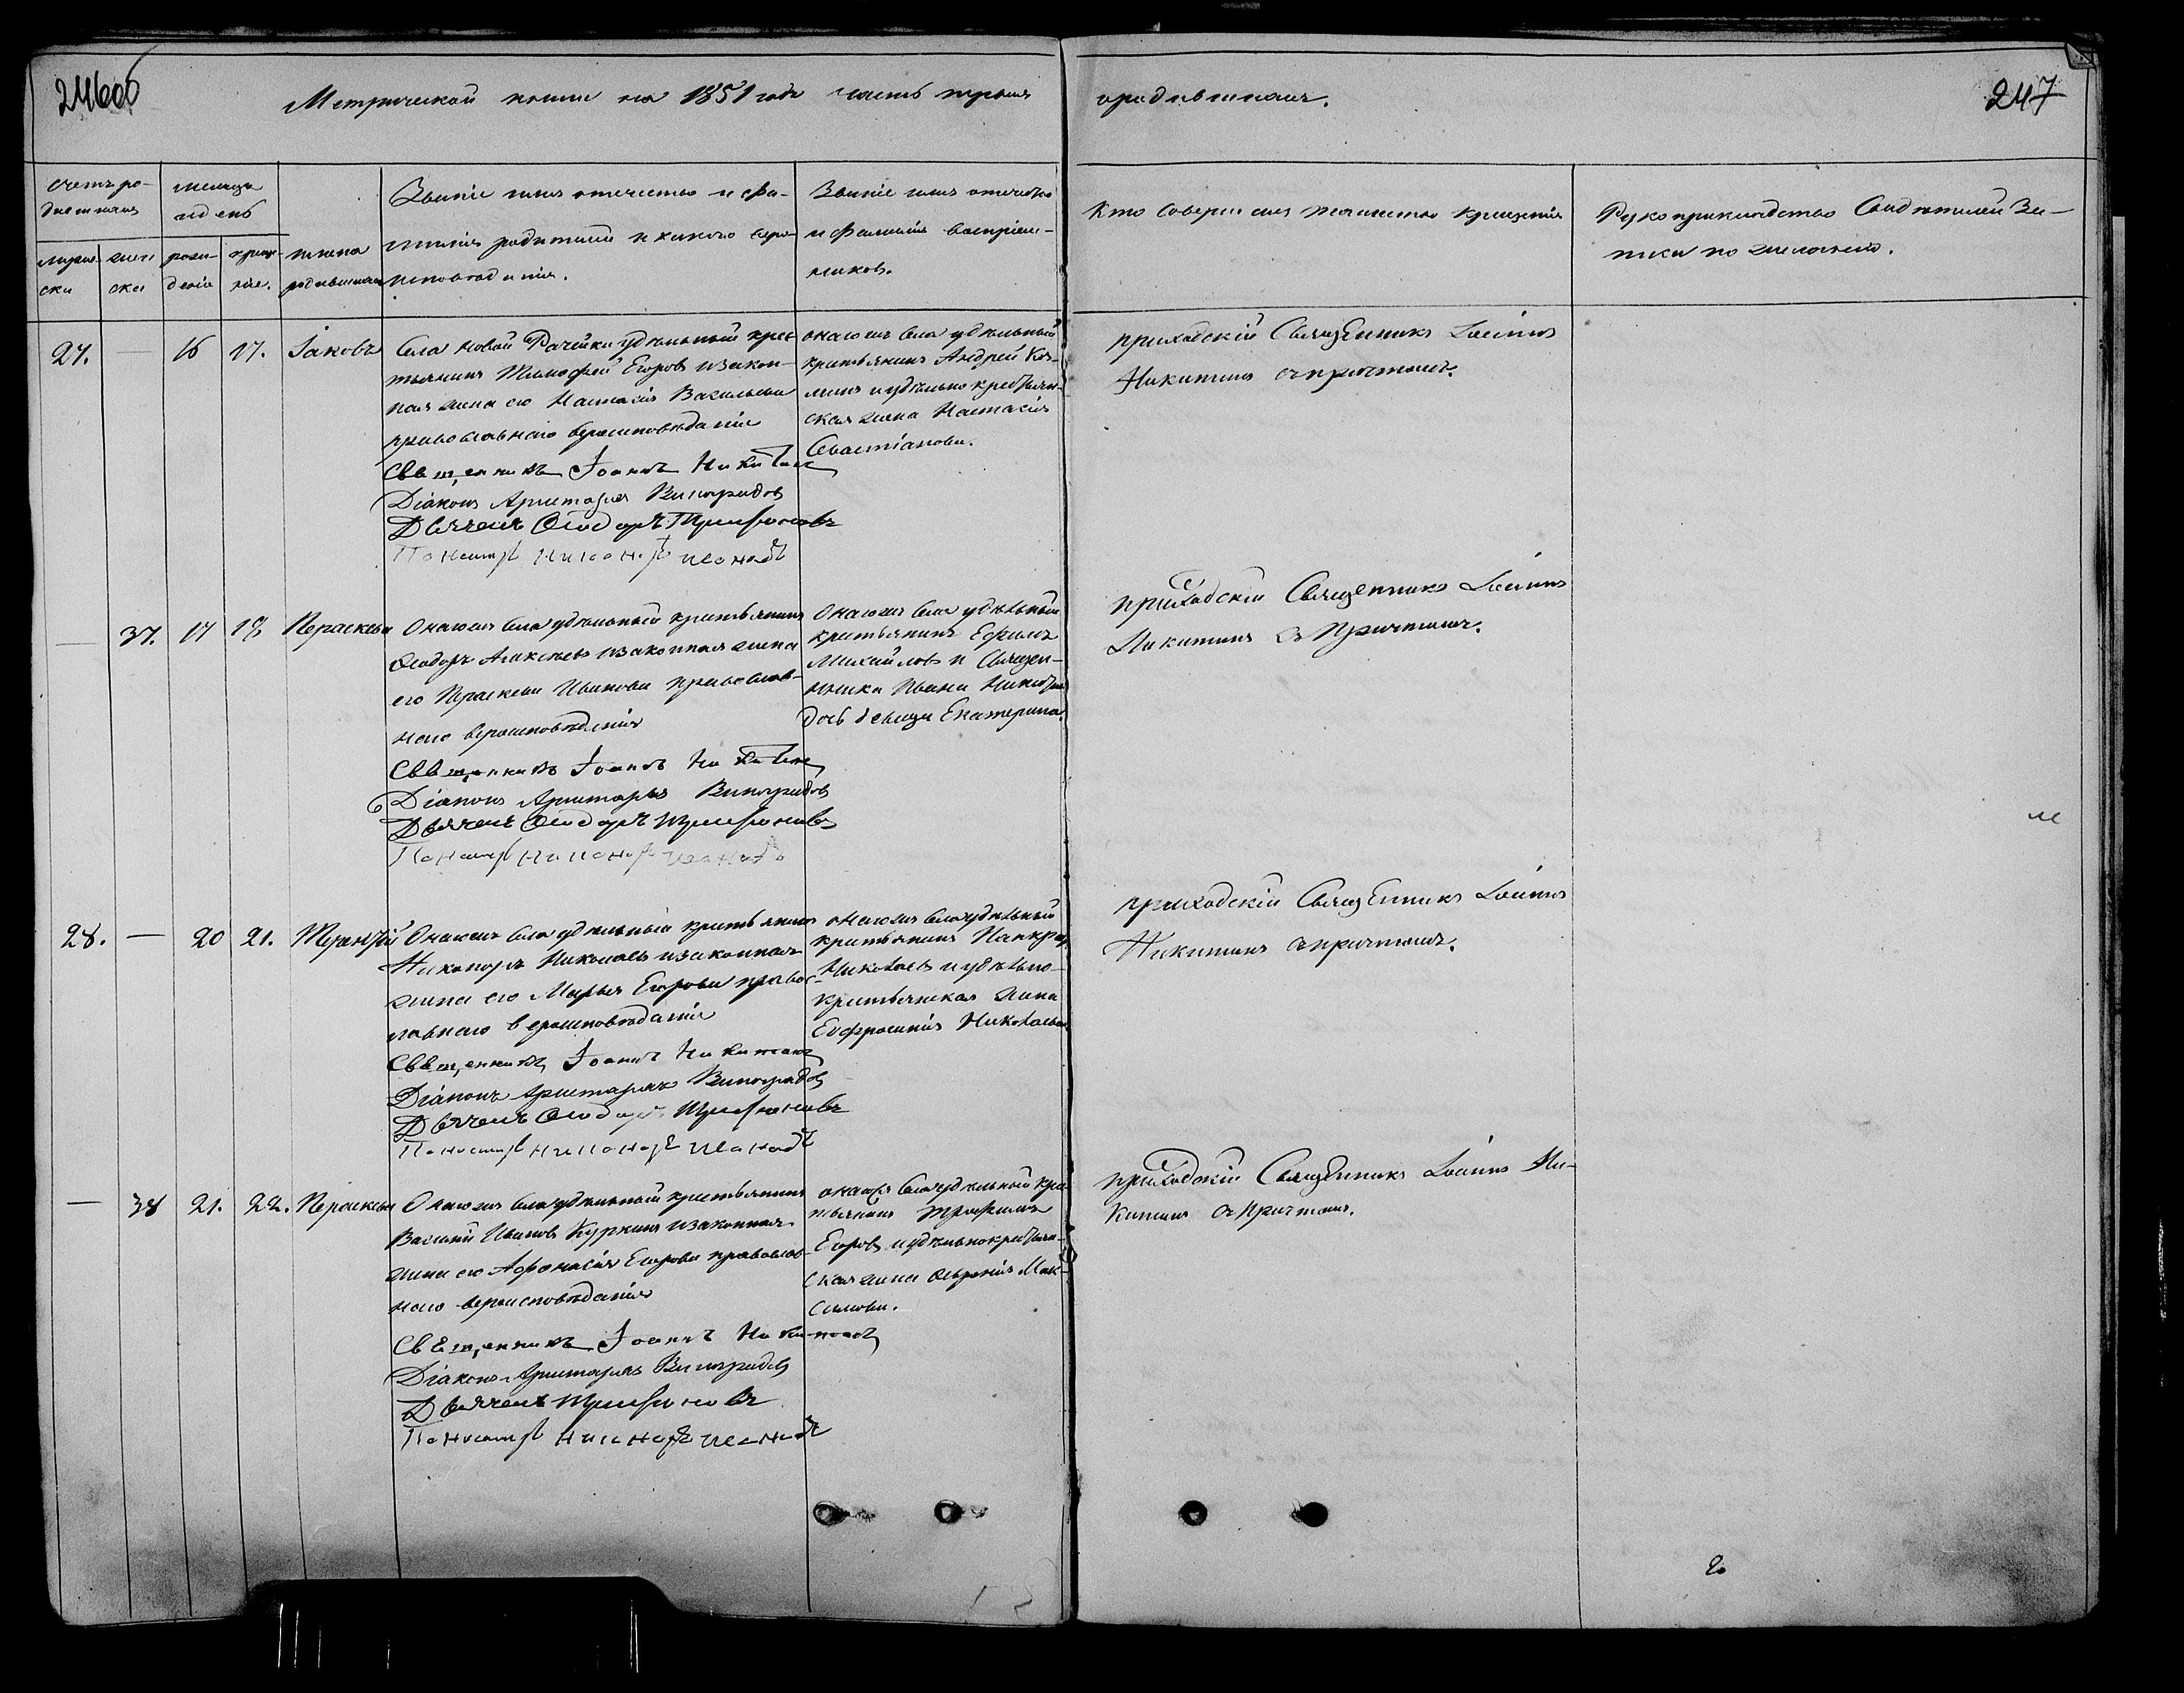 246об
Метрической книги на 1851 годъ часть первая
о родившихся.
247
Счетъ ро-
дившихся
Месяцъ
и день
мужес-
ски
женс-
ски
рож-
денія
креще-
нія.
имена
родившихся
Званіе имя отечество и фа-
милія родителей и какого веро-
исповеданія.
Званіе имя отечество
и фамилія воспріем-
никовъ.
Кто совершилъ таинство крещенія
Рукоприкладство свидетелей за-
писи по желанію.
27. — 16 17. Іаковъ
Села Новой Рачейки удельный крес-
тьянинъ Тимофей Егоровъ и закон-
ная жена его Настасія Васильева
православнаго вероисповеданія
Священникъ Іоаннъ Никитинъ
Діаконъ Аристархъ Виноградовъ
Дьячекъ Ѳеодоръ Трифоновъ
Пономарь Никоноръ
онагожъ села удельный
крестьянинъ Андрей Коз-
минъ и удельно крестьян-
ская жена Настасія
Севастіанова.
приходскій Священникъ Іоаннъ
Никитинъ съ причтомъ.
— 37. 17 18 Параскева
Онагожъ села удельный крестьянинъ
Ѳеодоръ Алексеевъ и законная жена
его Праскева Иванова православ-
наго вероисповеданія
Священникъ Іоаннъ Никитинъ
Діаконъ Аристархъ Виноградовъ
Дьячекъ Ѳеодоръ Трифоновъ
Пономарь Никоноръ
Онагожъ села удельный
крестьянинъ Ефимъ
Михайловъ и Священ-
ника Ивана Никитина
дочь девица Екатерина.
приходскій Священникъ Іоаннъ
Никитинъ съ Причтомъ.
28. — 20 21.
Онагожъ села удельный крестьянинъ
Никаноръ Николаевъ и законная
жена его Марья Егорова правос-
лавнаго вероисповеданія
Священникъ Іоаннъ Никитинъ
Діаконъ Аристархъ Виноградовъ
Дьячекъ Ѳеодоръ Трифоновъ
Пономарь Никоноръ
онагожъ села удельный
крестьянинъ Панкрат
Николаевъ и удельно-
крестьянская жена
Евфросинія Николаева
приходскій Священникъ Іоаннъ
Никитинъ съ причтомъ.
— 38 21. 22. Параскева
Онагожъ села удельный крестьянинъ
Василій Ивановъ Куркинъ и законная
жена его Афонасія Егорова православ-
наго вероисповеданія
Священникъ Іоаннъ Никитинъ
Діаконъ Аристархъ Виноградовъ
Дьячекъ Трифоновъ
Пономарь Никоноръ
онагожъ села удельный кре-
стьянинъ Трофимъ
Егоровъ и удельнокрестьян-
ская жена Мак-
симова.
приходскій Священникъ Іоаннъ Ни-
китинъ съ Причтомъ.